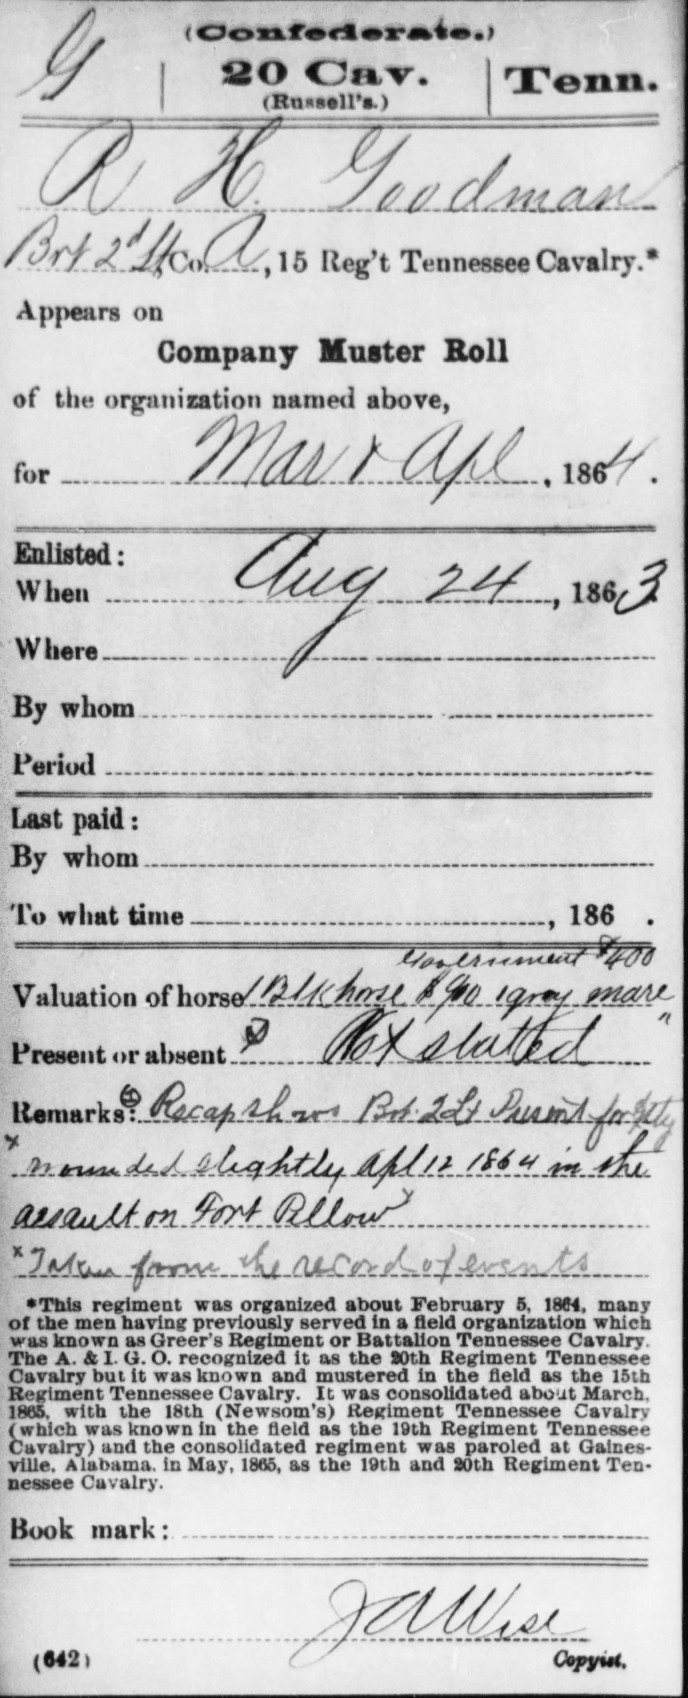 (Confederate.)
G | 20 Cav. | Tenn.
(Russell's.)
R H. Goodman
Brt 2d Lt, Co. A, 15 Reg't Tennessee Cavalry.*
Appears on
Company Muster Roll
of the organization named above,
for Mar & Apl, 1864.
Enlisted:
When Aug 24, 1863
Where
By whom
Period
Last paid:
By whom
To what time , 186 .
Government $400
Valuation of horse 1 Blk horse 1 gray mare "
Present or absent Not stated
Remarks: Recap shows Brt. 2 Lt Present for duty
x wounded slightly Apl 12 1864 in the
assault on Fort Pillow x
x Taken from the record of events
*This regiment was organized about February 5, 1864, many
of the men having previously served in a field organization which
was known as Greer's Regiment or Battalion Tennessee Cavalry.
The A. & I. G. O. recognized it as the 20th Regiment Tennessee
Cavalry but it was known and mustered in the field as the 15th
Regiment Tennessee Cavalry. It was consolidated about March,
1865, with the 18th (Newsom's) Regiment Tennessee Cavalry
(which was known in the field as the 19th Regiment Tennessee
Cavalry) and the consolidated regiment was paroled at Gaines-
ville, Alabama, in May, 1865, as the 19th and 20th Regiment Ten-
nessee Cavalry.
Book mark:
J A Wise
(642) Copyist.